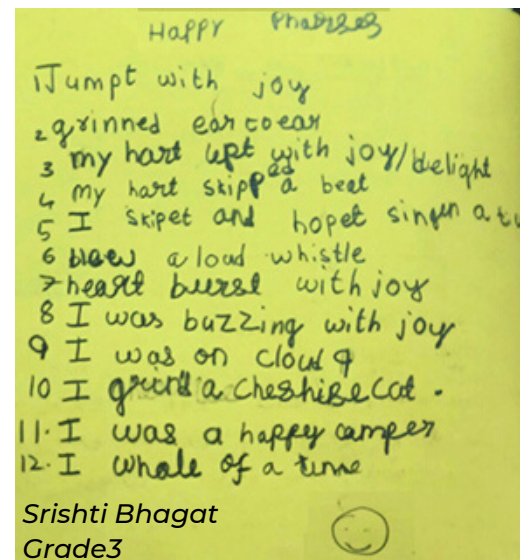 Happy Phabses
1 Jumpt with joy
2 grinned ear to ear
3 my hart lept with joy/delight
4 my hart skipped a beet
5 I skipet and hopet singen a tu
6 blew a loud whistle
7 heart burst with joy
8 I was buzzing with joy
9 I was on cloud 9
10 I a Cheshire Cat.
11. I was a happy camper
12. I whale of a time
Srishti Bhagat
Grade3